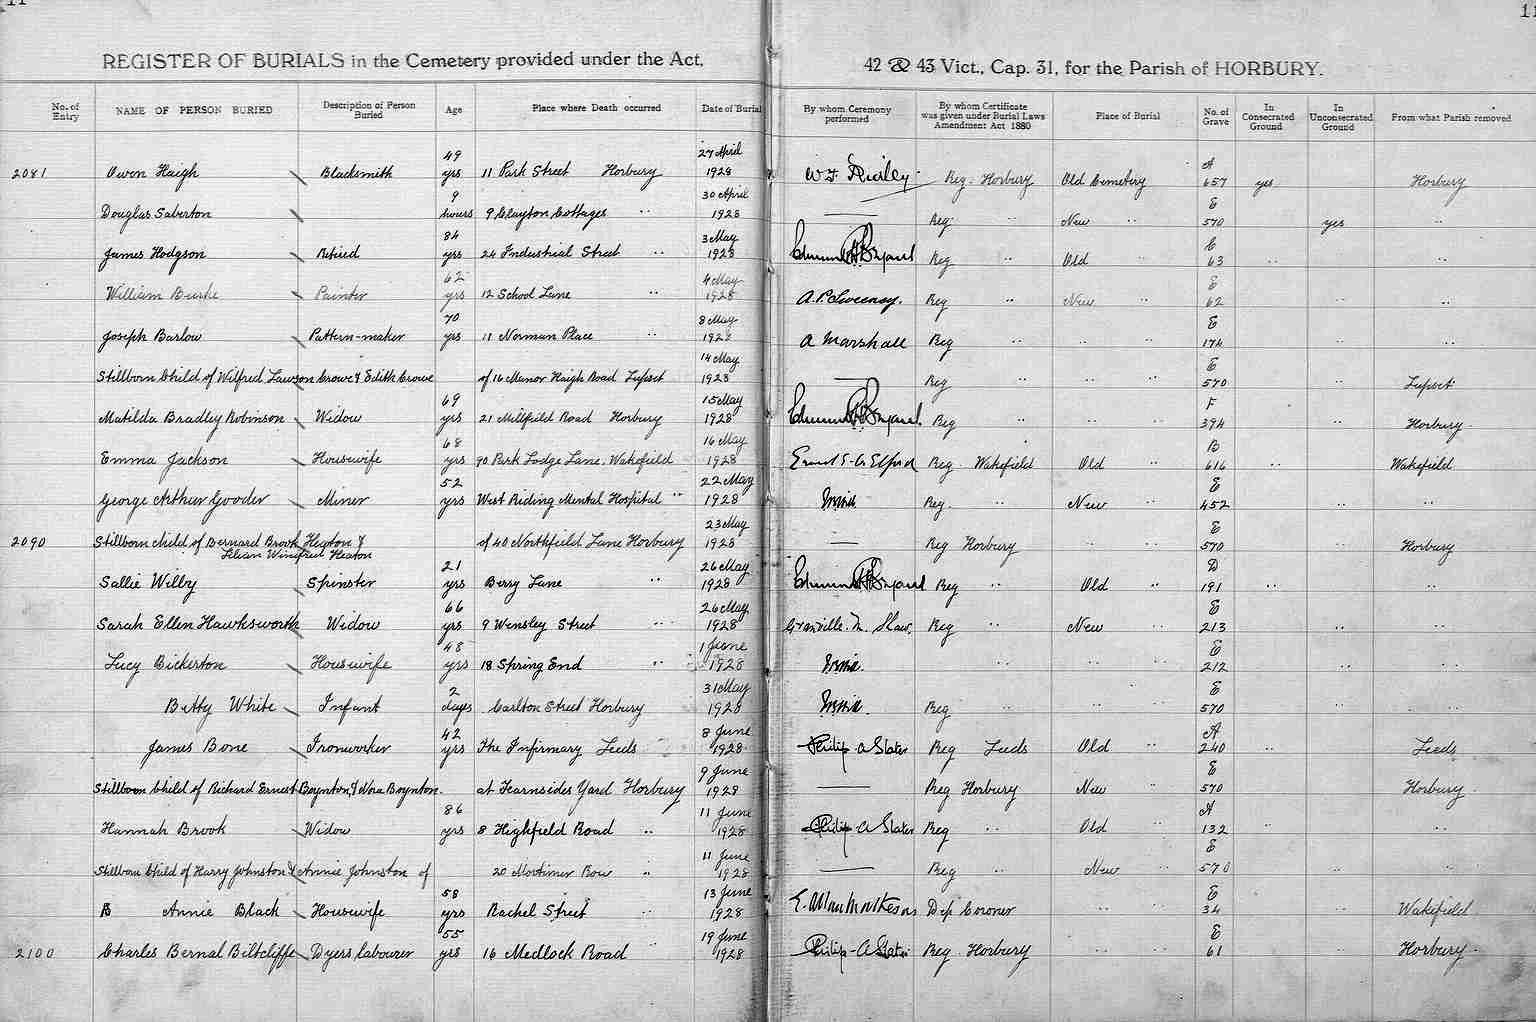 11 11
REGISTER OF BURIALS in the Cemetery provided under the Act, 42 & 43 Vict., Cap. 31, for the Parish of HORBURY.
No. of Entry NAME OF PERSON BURIED Description of Person Buried Age Place where Death occurred Date of Burial By whom Ceremony performed By whom Certificate was given under Burial Laws Amendment Act 1880 Place of Burial No. of Grave In Consecrated Ground In Unconsecrated Ground From what Parish removed
2081 Owen Haigh Blacksmith 49 yrs 11 Park Street Horbury 27 April 1928 Reg. Horbury Old Cemetery A 657 yes Horbury
Douglas Saberton 9 hours 9 Clayton Cottages " 30 April 1928 — Reg " New " E 570 yes "
James Hodgson Retired 84 yrs 24 Industrial Street " 3 May 1928 Reg " Old " E 63 " "
William Burke Painter 62 yrs 12 School Lane " 4 May 1928 A. P. Sweeney. Reg " New " E 62 " "
Joseph Barlow Pattern-maker 70 yrs 11 Norman Place " 8 May 1928 A Marshall Reg " " " E 174 " "
Stillborn Child of Wilfred Lawson Crowe & Edith Crowe of 16 Manor Haigh Road Lupset 14 May 1928 — Reg " " " E 570 " Lupset
Matilda Bradley Robinson Widow 69 yrs 21 Millfield Road Horbury 15 May 1928 Reg " " " F 394 " Horbury
Emma Jackson Housewife 68 yrs 90 Park Lodge Lane. Wakefield 16 May 1928 Reg. Wakefield Old " B 616 " Wakefield
George Arthur Gooder Miner 52 yrs West Riding Mental Hospital " 22 May 1928 Reg. " New " E 452 " "
2090 Stillborn child of Bernard Brook Heaton & Lilian Winifred Heaton of 40 Northfield Lane Horbury 23 May 1928 — Reg Horbury " " E 570 " Horbury
Sallie Wilby Spinster 21 yrs Berry Lane " 26 May 1928 Reg " Old " D 191 " "
Sarah Ellen Hawksworth Widow 66 yrs 9 Wensley Street " 26 May 1928 Granville. N. Shaw. Reg " New " E 213 " "
Lucy Bickerton Housewife 48 yrs 18 Spring End " 1 June 1928 " " " E 212 " "
Betty White Infant 2 days Carlton Street Horbury 31 May 1928 Reg " " " E 570 " "
James Bone Ironworker 42 yrs The Infirmary Leeds 8 June 1928 Philip A Slater Reg Leeds Old " A 240 " Leeds
Stillborn Child of Richard Ernest Boynton & Nora Boynton. at Fearnsides Yard Horbury 9 June 1928 — Reg Horbury New " E 570 " Horbury
Hannah Brook Widow 86 yrs 8 Highfield Road " 11 June 1928 Philip A Slater Reg " Old " A 132 " "
Stillborn Child of Harry Johnston & Annie Johnston of 20 Mortimer Row " 11 June 1928 — Reg " New " E 570 " "
B Annie Black Housewife 58 yrs Rachel Street " 13 June 1928 Dep Coroner " " E 34 " Wakefield
2100 Charles Bernal Biltcliffe Dyers labourer 55 yrs 16 Medlock Road " 19 June 1928 Philip A Slater Reg. Horbury " " E 61 " Horbury